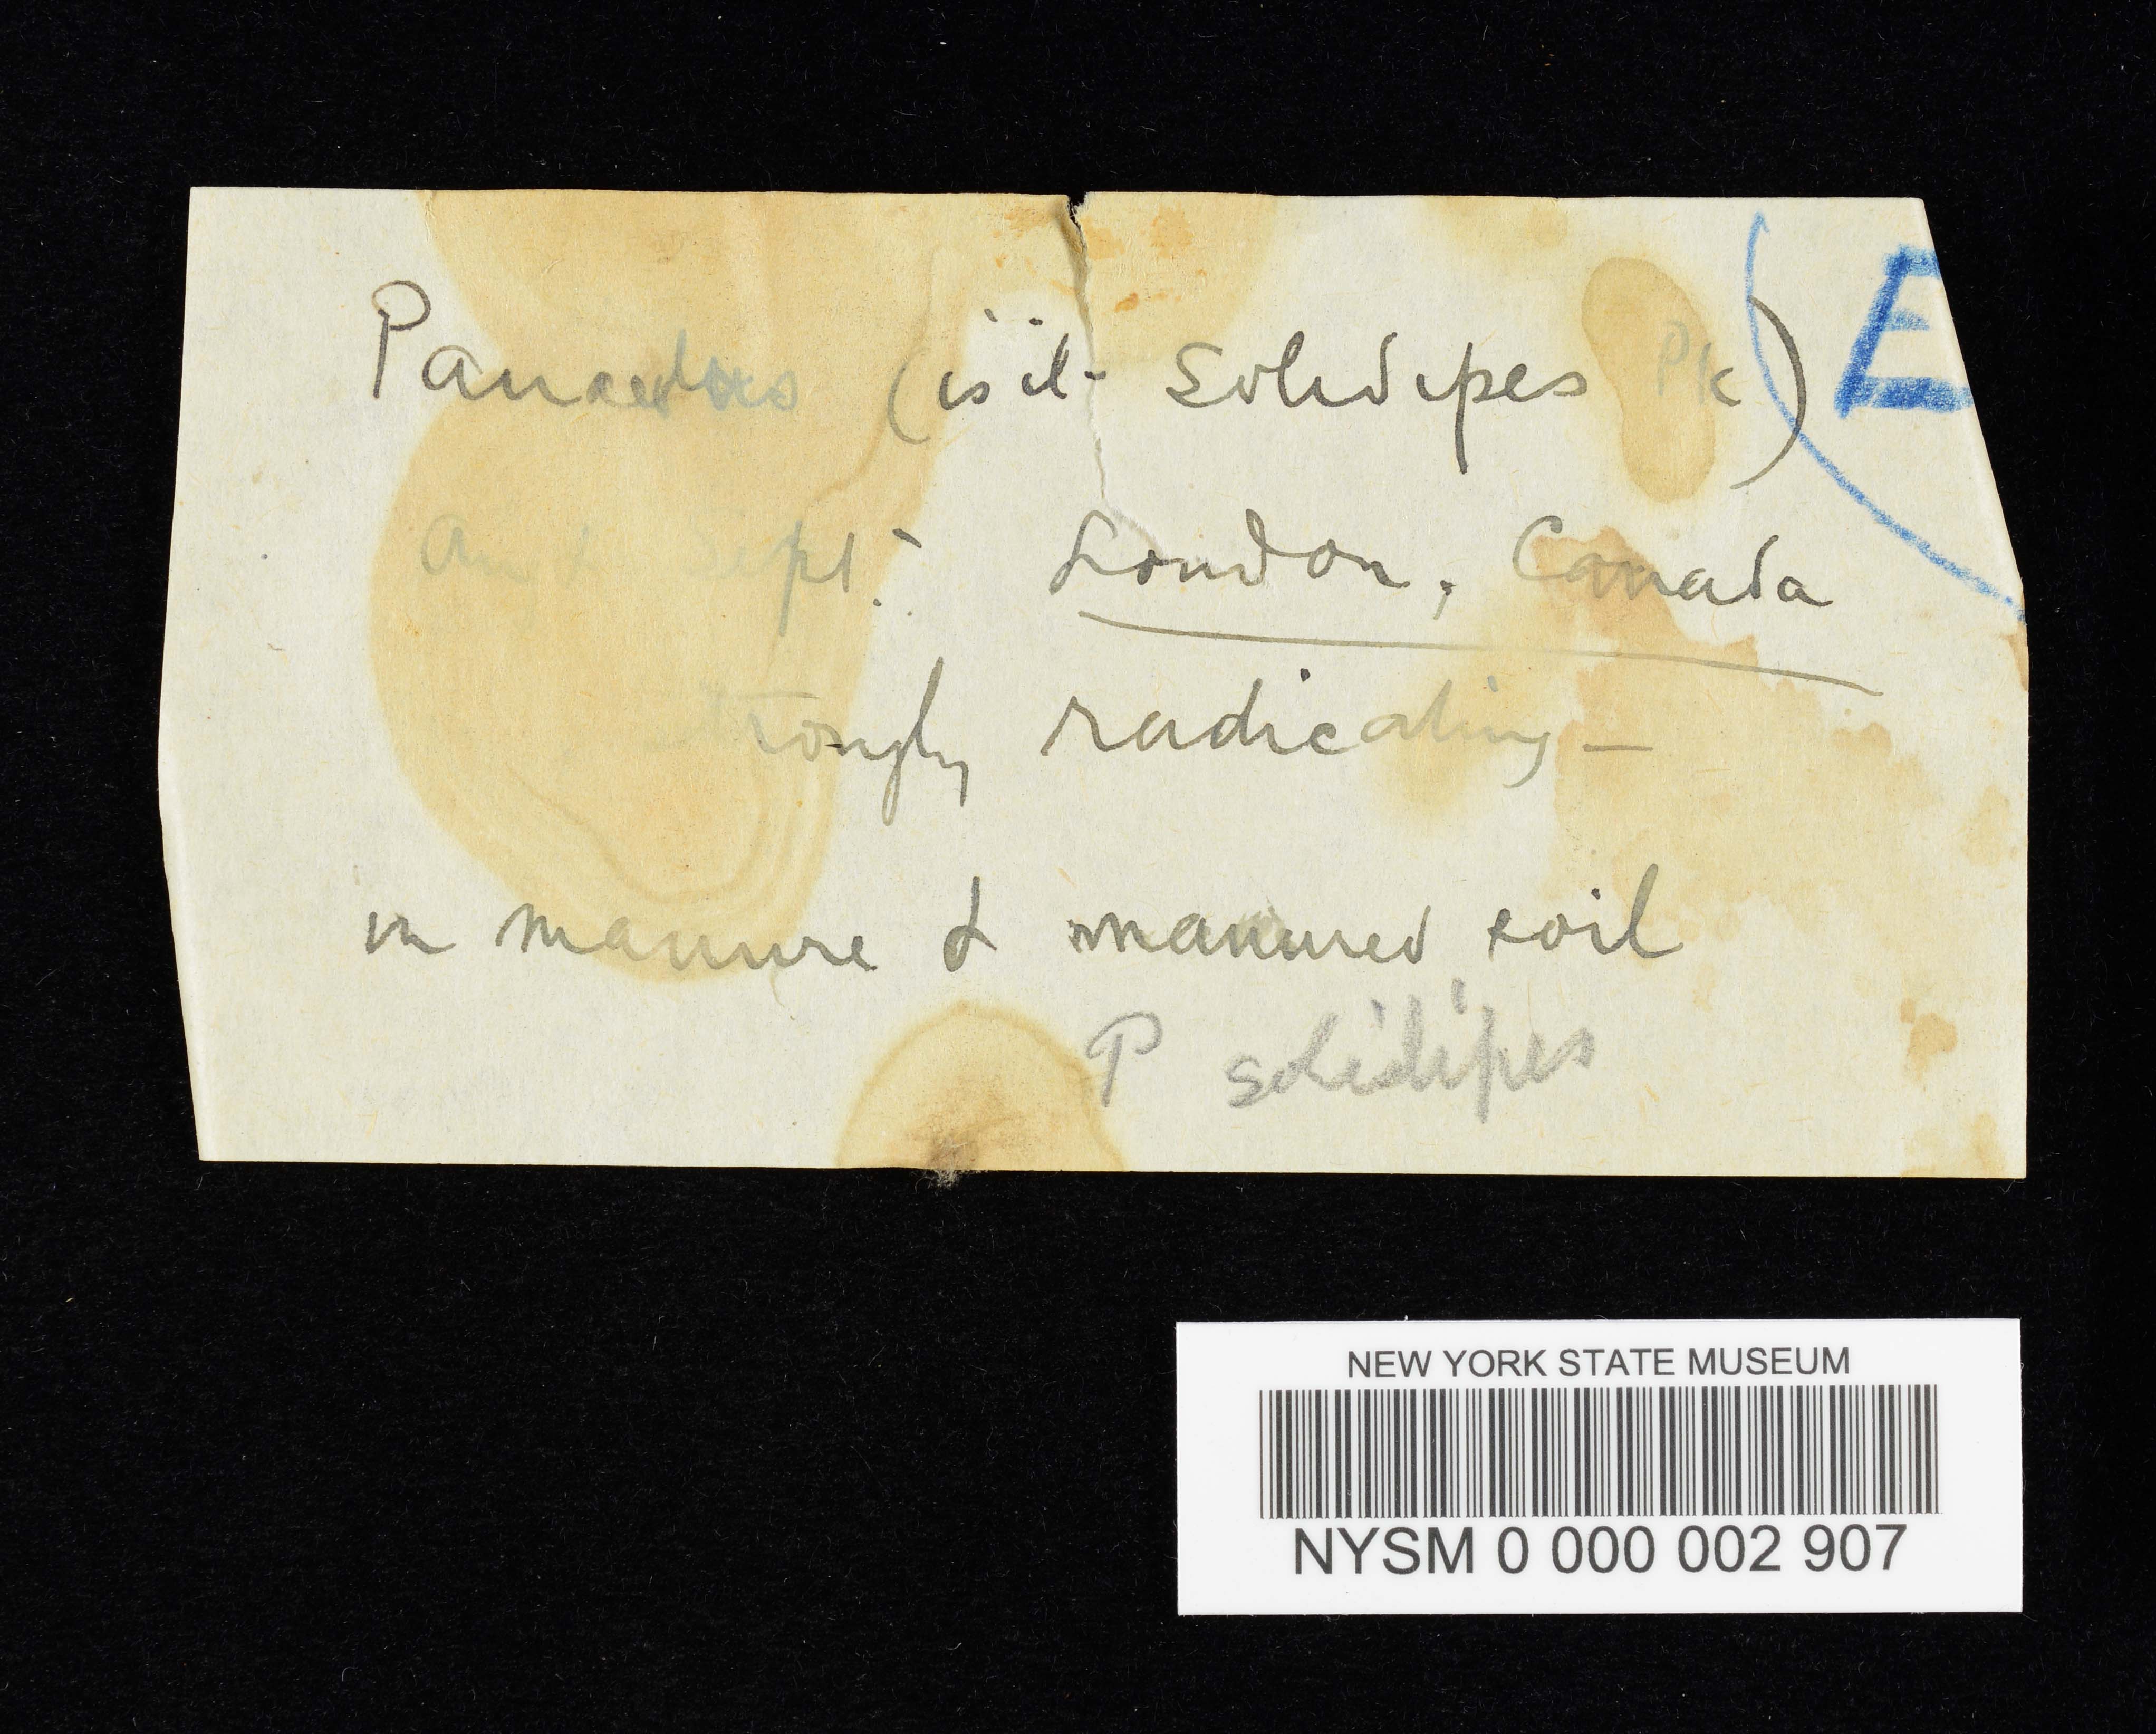 Panaeolus (is it solidipes Pk)
E
Aug & Sept. London, Canada
strongly radicating —
in manure & manured soil
P solidipes
NEW YORK STATE MUSEUM
NYSM 0 000 002 907